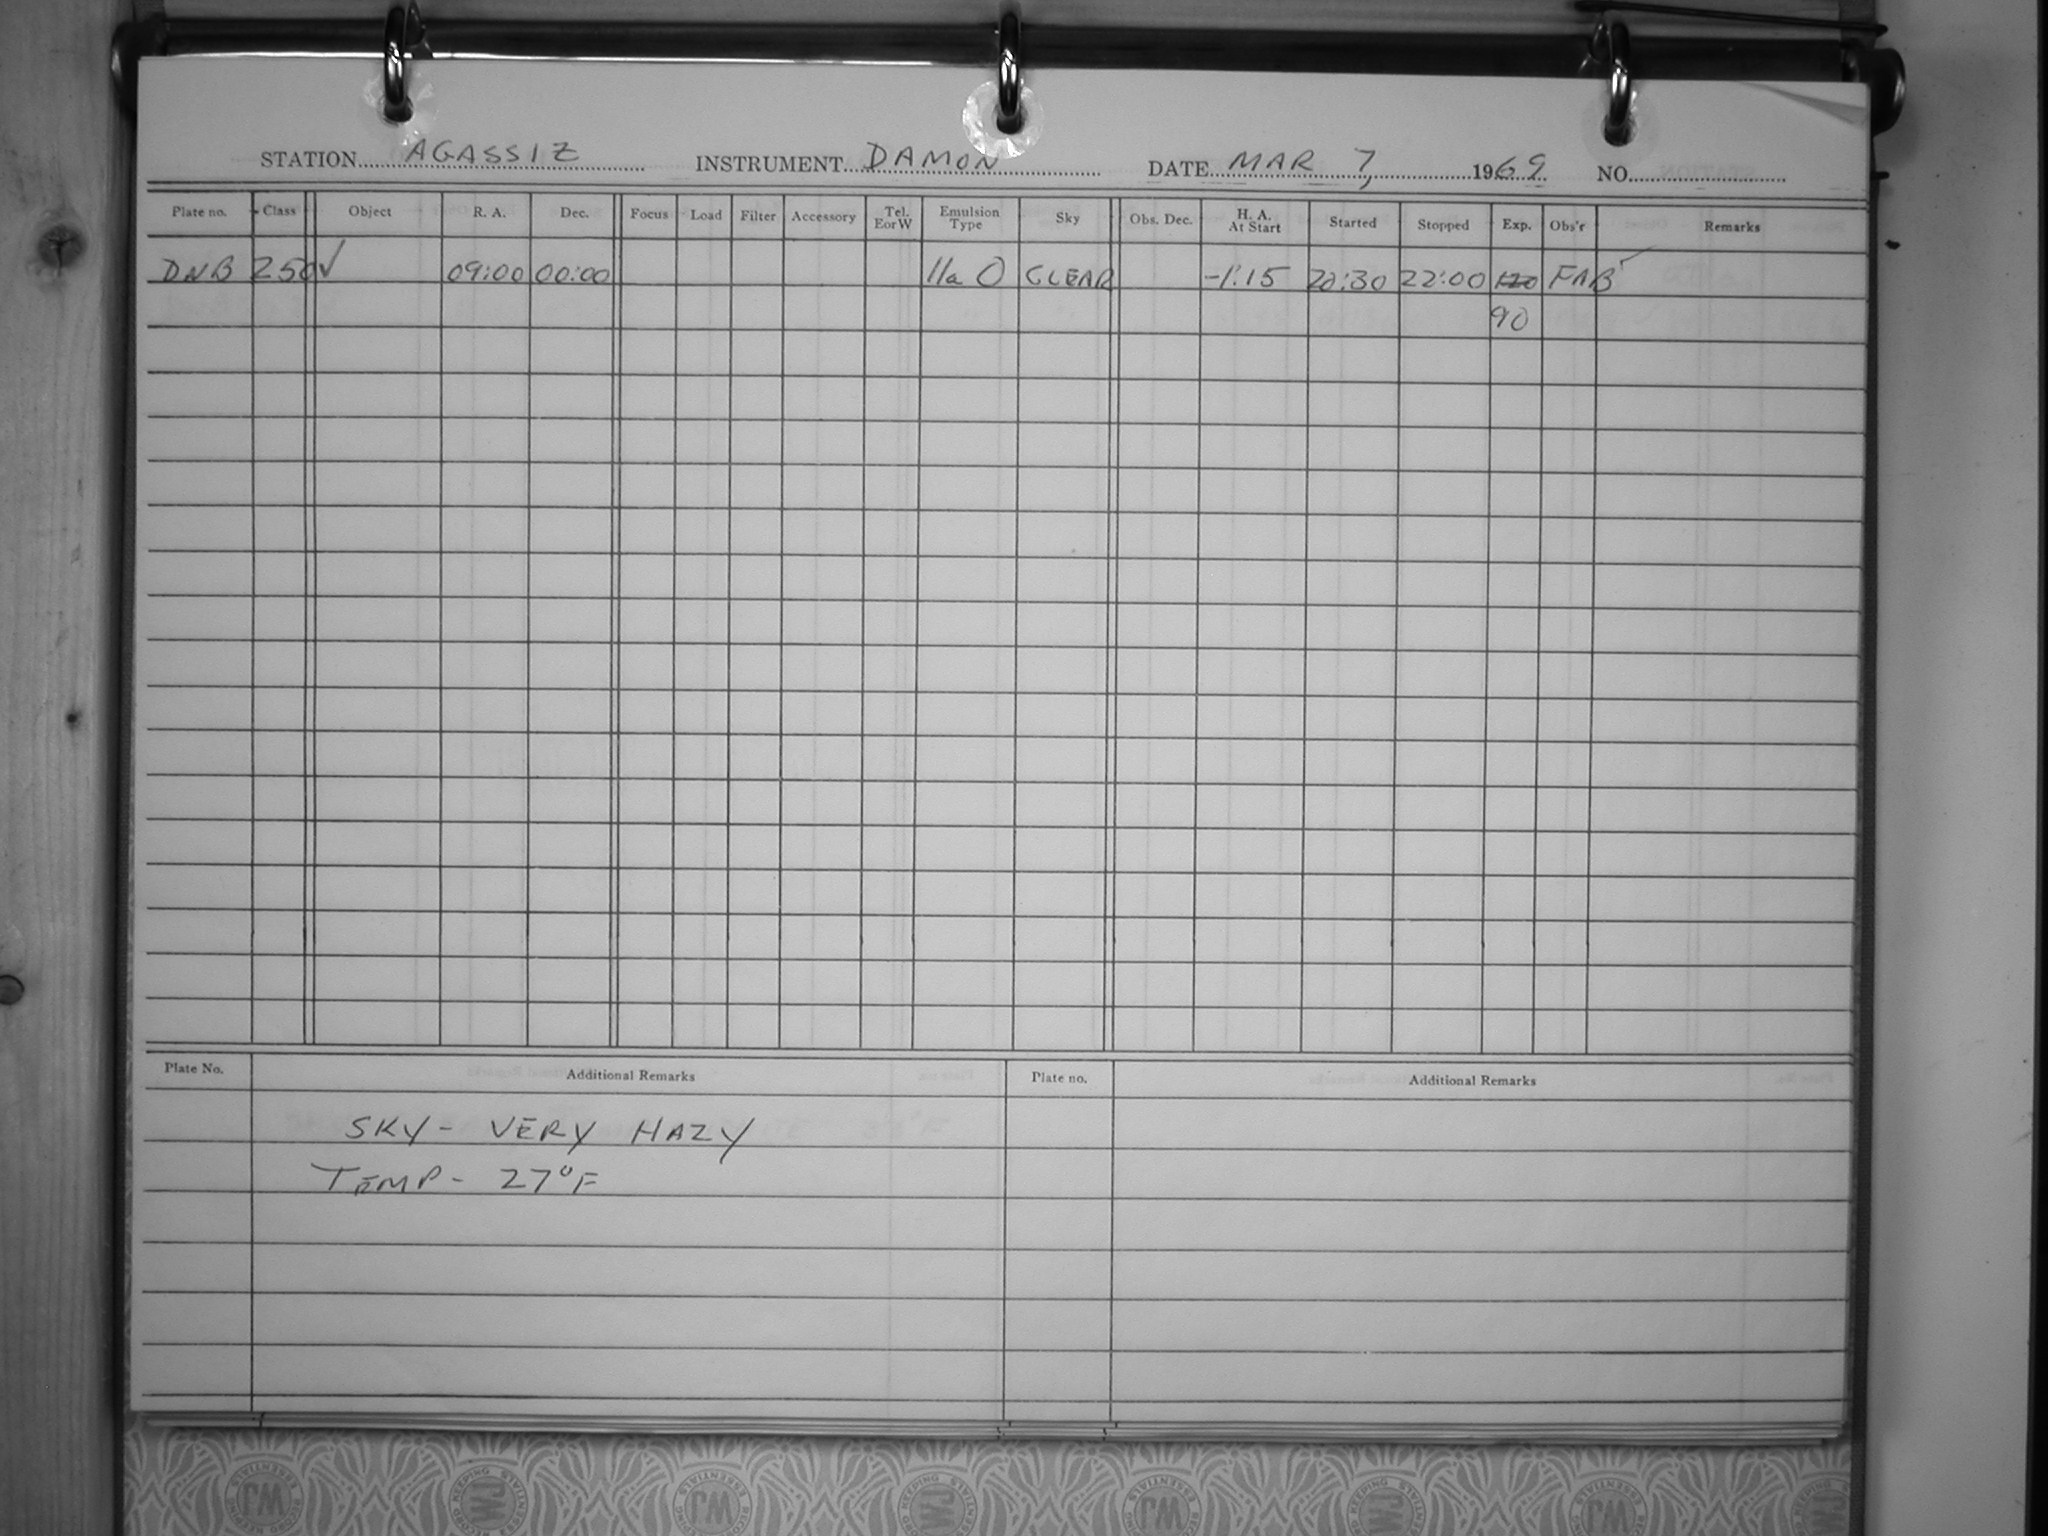 STATION AGASSIZ INSTRUMENT DAMON DATE MAR 7, 1969 NO.
Plate no. Class Object R. A. Dec. Focus Load Filter Accessory Tel. E or W Emulsion Type Sky Obs. Dec. H. A. At Start Started Stopped Exp. Obs'r Remarks
DNB 250 ✓ 09:00 00:00 IIa O CLEAR -1:15 20:30 22:00 120 FAB
90
Plate No. Additional Remarks Plate no. Additional Remarks
SKY - VERY HAZY
TEMP - 27°F
WJ ESSENTIALS RECORD KEEPING